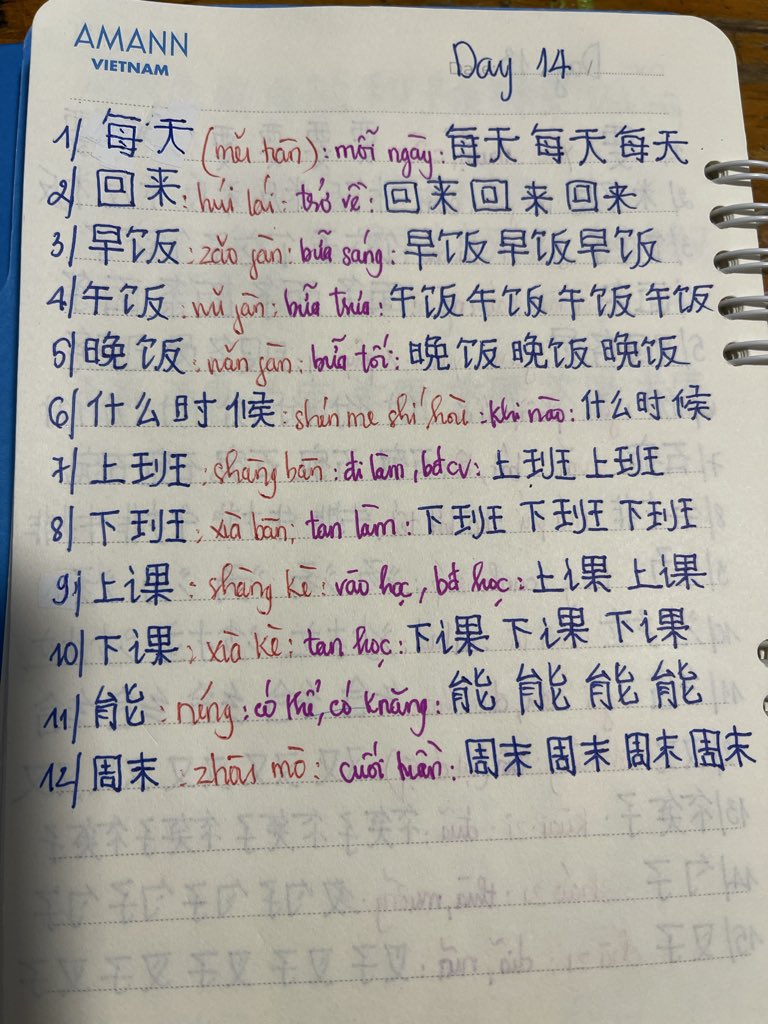 AMANN
VIETNAM
Day 14
1) 每天 (měi tiān): mỗi ngày: 每天 每天 每天
2) 回来: húi lái: trở về: 回来 回来 回来
3) 早饭: zǎo fàn: bữa sáng: 早饭 早饭 早饭
4) 午饭: wǔ fàn: bữa trưa: 午饭 午饭 午饭 午饭
5) 晚饭: wǎn fàn: bữa tối: 晚饭 晚饭 晚饭
6) 什么时候: shén me shí hòu: khi nào: 什么时候
7) 上班: shàng bān: đi làm, bđ cv: 上班 上班
8) 下班: xià bān: tan làm: 下班 下班 下班
9) 上课: shàng kè: vào học, bđ học: 上课 上课
10) 下课: xià kè: tan học: 下课 下课 下课
11) 能: néng: có thể, có knăng: 能 能 能 能
12) 周末: zhōu mò: cuối tuần: 周末 周末 周末 周末